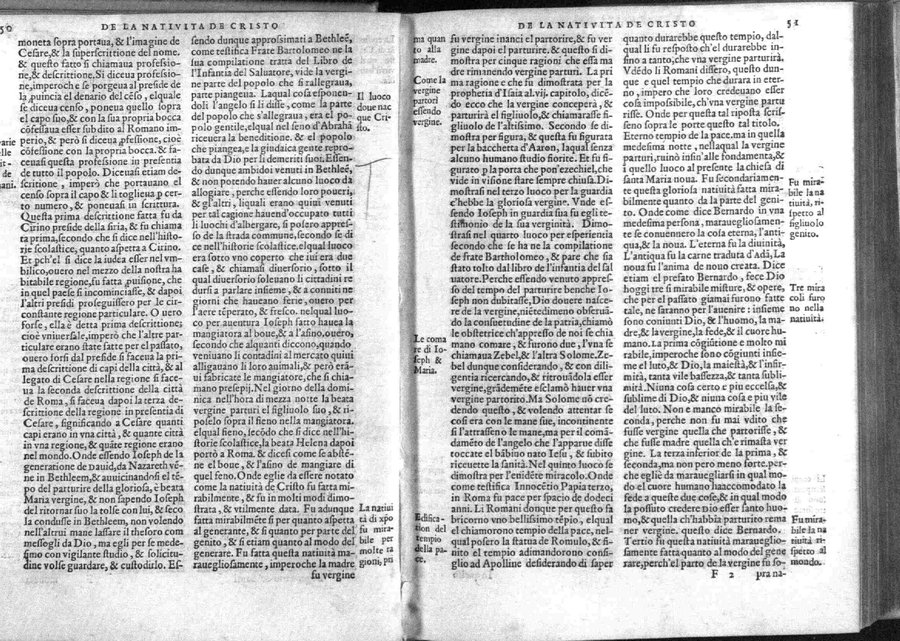 50
DE LA NATIVITA DE CRISTO
moneta sopra portaua, & l'imagine de
Cesare, & la superscrittione del nome.
& questo fatto si chiamaua professio-
ne, & descrittione. Si diceua professio-
ne, imperoche se porgeua al preside de
la puincia el denario del cēso, elquale
se diceua censo, poneua quello sopra
el capo suo, & con la sua propria bocca
cōfessaua esser subdito al Romano im-
perio, & però si diceua pfessione, cioè
cōfessione con la propria bocca. & fa-
ceuasi questa professione in presentia
de tutto il popolo. Diceuasi etiam de-
scrittione, imperò che portauano el
censo sopra il capo & li toglieua p cer-
to numero, & poneuasi in scrittura.
Questa prima descrittione fatta fu da
Cirino preside della siria, & fu chiama
ta prima, secondo che si dice nell'histo-
rie scolastice, quanto aspetta a Cirino.
Et pch'el si dice la iudea esser nel vm-
bilico, ouero nel mezzo della nostra ha
bitabile regione, fu fatta puisione, che
in quel paese si incominciasse, & dapoi
l'altri presidi proseguissero per le cir-
constante regione particulare. O uero
forse, ella è detta prima descrittione;
cioè vniuersale, imperò che l'altre par-
ticulare erano state fatte per el passato,
ouero forsi dal preside si faceua la pri-
ma descrittione di capi della città, & al
legato di Cesare nella regione si face-
ua la seconda descrittione della città
de Roma, si faceua dapoi la terza de-
scrittione della regione in presentia di
Cesare, significando a Cesare quanti
capi erano in vna città, & quante città
in vna regione, & quāte regione erano
nel mondo. Onde essendo Ioseph de la
generatione de Dauid, da Nazareth vē-
ne in Bethleem, & auuicinandosi el tē-
po del parturire della gloriosa, è beata
Maria vergine, & non sapendo Ioseph
del ritornar suo la tolse con lui, & seco
la condusse in Bethleem, non volendo
nell'alrui mane lassare il thesoro com
messogli da Dio, ma egli per se mede-
simo con vigilante studio, & solicitu-
dine volse guardare, & custodirlo. Es-
sendo dunque approssimati a Bethleē,
come testifica Frate Bartolomeo ne la
sua compilatione tratta del Libro de
l'Infantia del Saluatore, vide la vergi-
ne parte del popolo che si rallegraua,
parte piangena. Laqual cosa esponen-
doli l'angelo si li disse, come la parte
del popolo che s'allegraua, era el po-
polo gentile, elqual nel seno d'Abraha
riceuera la beneditione. & el popolo
che piangea, e la giudaica gente repro-
bata da Dio per li demeriti suoi. Essen-
do dunque ambidoi venuti in Bethleē,
& non potendo hauer alcuno luoco da
allogare, perche essendo loro poueri,
& gl'altri, liquali erano quiui venuti
per tal cagione hauend'occupato tutti
li luochi d'albergare, si posero appres-
so de la strada commune, secondo se di
ce nell'historie scolastice. elqual luoco
era sotto vno coperto che iui era due
case, & chiamasi diuersorio, sotto il
qual diuersorio soleuano li cittadini re
dursi a parlare insieme, & a conuiti ne
giorni che haueano ferie, ouero per
l'aere tēperato, & fresco. nelqual luo-
co per auentura Ioseph fatto hauea la
mangiatora al boue, & a l'asino, ouero,
secondo che alquanti diccono, quando
veniuano li contadini al mercato quiui
alligauano li loro animali, & però erā-
ui fabricate le mangiatore, che si chia-
mano presepij. Nel giorno della domi-
nica nell'hora di mezza notte la beata
vergine parturì el figliuolo suo, & ri-
poselo sopra il fieno nella mangiatora.
elqual fieno, secōdo che si dice nell'hi-
storie scolastice, la beata Helena dapoi
portò a Roma. & dicesi come se abstē-
ne el boue, & l'asino de mangiare di
quel feno. Onde eglie da essere notato
come la natiuità de Cristo fu fatta mi-
rabilmente, & fu in molti modi dimo-
strata, & vtilmente data. Fu adunque
fatta mirabilmente si per quanto aspetta
al generante, & si quanto per parte del
genito, & si etiam quanto al modo del
generare. Fu fatta questa natiuità ma-
rauegliosamente, imperoche la madre
fu vergine
Il luoco
doue nac
que Cri-
sto.
La natiui
tà di xpo
fu mira-
bile per
molte ra
gioni, pri
51
DE LA NATIVITA DE CRISTO
ma quan
to alla
madre.
Come la
vergine
parturi
essendo
vergine.
Le coma
re di Io-
seph &
Maria.
Edifica-
tion del
tempio
della pa-
ce.
fu vergine inanci el partorire, & fu ver
gine dapoi el parturire. & questo si di
mostra per cinque ragioni che essa ma
dre rimanendo vergine parturì. La pri
ma ragione e che fu dimostrata per la
prophetia d'Isaia al .vij. capitolo, dicē-
do ecco che la vergine conceperà, &
parturirà el figliuolo, & chiamarasse fi-
gliuolo de l'altissimo. Secondo se di-
mostra per figura, & questa fu figurata
per la bacchetta d'Aaron, laqual senza
alcuno humano studio fiorite. Et fu fi-
gurato p la porta che pon'ezechiel, che
vide in visione stare sempre chiusa. Di-
mostrasi nel terzo luoco per la guardia
c'hebbe la gloriosa vergine. Vnde es-
sendo Ioseph in guardia sua fu egli te-
stimonio de la sua verginità. Dimo-
strasi nel quarto luoco per esperientia
secondo che se ha ne la compilatione
de frate Bartholomeo, & pare che sia
stato tolto dal libro de l'infantia del sal
uatore. Perche essendo venuto appres-
so del tempo del parturire benche Io-
seph non dubitasse, Dio douere nasce-
re de la vergine, niētedimeno obseruā-
do la consuetudine de la patria, chiamò
le obstetrice ouero nostr'oi se chia
mano comare, & furono due, l'vna se
chiamaua Zebel, & l'altra Solome. Ze-
bel dunque considerando, & con dili-
gentia ricercando, & ritrouādola esser
vergine, grādemēte esclamò hauer vna
vergine partorito. Ma Solome nō cre-
dendo questo, & volendo attentar se
cosi era con le mane sue, incontinente
si l'attrassen̄o le mane, ma per il comā-
damēto de l'angelo che l'apparue disse
toccate el bābino nato Iesu, & subito
riceuette la sanità. Nel quinto luoco se
dimostra per l'euidēte miracolo. Onde
come testifica Innocētio Papa terzo,
in Roma fu pace per spacio de dodeci
anni. Li Romani donque per questo fa
bricorno vno bellissimo tēpio, elqual
el chiamorono tempio della pace, nel-
qual posero la statua de Romulo, & fi-
nito el tempio adimandorono consi-
glio ad Apolline desiderando di saper
quanto durarebbe questo tempio, dal-
qual li fu resposto ch'el durarebbe in-
sino a tanto, che vna vergine parturirà.
Vdēdo li Romani dissero, questo dun-
que e quel tempio che durara in eter-
no, impero che loro credeuano esser
cosa impossibile, ch'vna vergine partu
risse. Onde per questa tal riposta scris-
seno sopra le porte questo tal titolo.
Eterno tempio de la pace. ma in quella
medesima notte, nellaqual la vergine
parturi, ruinò insin'alle fondamenta, &
i quello luoco al presente la chiesa di
santa Maria noua. Fu secondariamen-
te questa gloriosa natiuità fatta mira-
bilmente quanto da la parte del geni-
to. Onde come dice Bernardo in vna
medesima persona, marauegliosamen-
te se conuennero la cosa eterna, l'anti-
qua, & la noua. L'eterna fu la diuinità,
L'antiqua fu la carne traduta d'Adā, La
noua fu l'anima de nouo creata. Dice
etiam el prefato Bernardo, fece Dio
hoggi tre si mirabile misture, & opere,
che per el passato giamai furono fatte
tale, ne sarāno per l'auenire: insieme
sono coniunti Dio, & l'huomo, la ma-
dre, & la vergine, la fede, & il cuore hu-
mano. La prima cōgiūtione e molto mi
rabile, imperoche sono cōgiunti insie-
me el luto, & Dio, la maiestà, & l'infir-
mità, tanta vile bassezza, & tanta subli-
mità. Niuna cosa certo e piu eccelsa, &
sublime di Dio, & niuna cosa e piu vile
del luto. Non e manco mirabile la se-
conda, perche non fu mai vdito che
fusse vergine quella che partorisse, &
che fusse madre quella ch'e rimasta ver
gine. La terza inferior de la prima, &
seconda, ma non pero meno forte. per-
che eglie da marauegliarsi in qual mo-
do el cuore humano haaccomodato la
fede a queste due cose, & in qual modo
la possuto credere Dio esser santo huo-
mo, & quella ch'habbia partorito rema
ner vergine. questo dice Bernardo.
Tertio fu questa natiuità marauegllo-
samente fatta quanto al modo del gene
rare, perch'el parto de la vergine fu so-
F 2 pra na-
Fu mira-
bile la na
tiuità, ri-
spetto al
figliuolo
genito.
Tre mira
coli furo
no nella
natiuità.
Fu mira-
bile la na
tiuità ri-
spetto al
mondo.